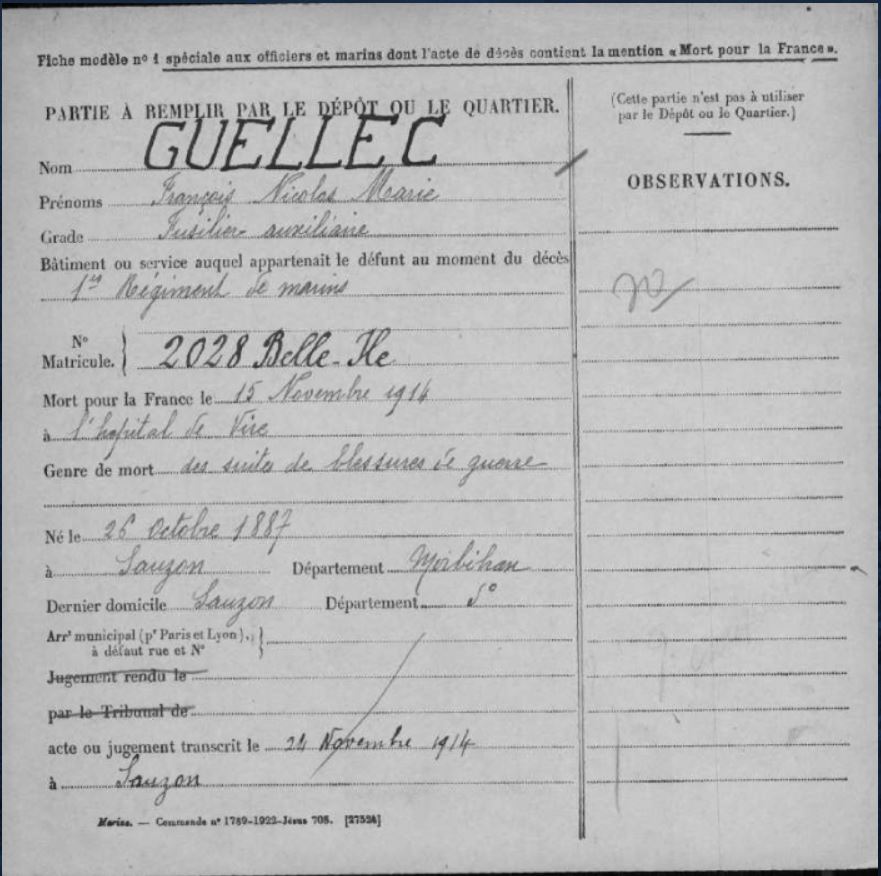 Fiche modèle n° 1 spéciale aux officiers et marins dont l'acte de décès contient la mention « Mort pour la France ».
PARTIE À REMPLIR PAR LE DÉPÔT OU LE QUARTIER.
Nom GUELLEC
Prénoms François Nicolas Marie
Grade Fusilier auxiliaire
Bâtiment ou service auquel appartenait le défunt au moment du décès
1er Régiment de marins
N°
Matricule. } 2028 Belle-Ile
Mort pour la France le 15 Novembre 1914
à l'hopital de Vire
Genre de mort des suites de blessures de guerre
Né le 26 Octobre 1887
à Sauzon Département Morbihan
Dernier domicile Sauzon Département d°
Arrt municipal (pr Paris et Lyon),
à défaut rue et N° }
Jugement rendu le
par le Tribunal de
acte ou jugement transcrit le 24 Novembre 1914
à Sauzon
Marine. — Commande n° 1789-1922-Jésus 705. [27524]
(Cette partie n'est pas à utiliser
par le Dépôt ou le Quartier.)
OBSERVATIONS.